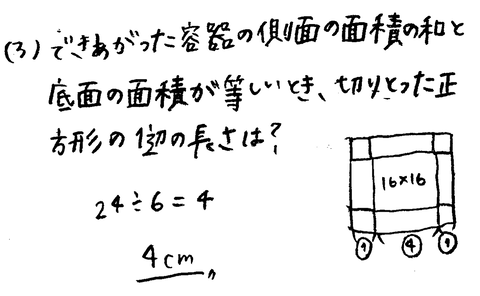 (3) できあがった容器の側面の面積の和と
底面の面積が等しいとき、切りとった正
方形の1辺の長さは？
24÷6=4
4cm
16×16
① ④ ①